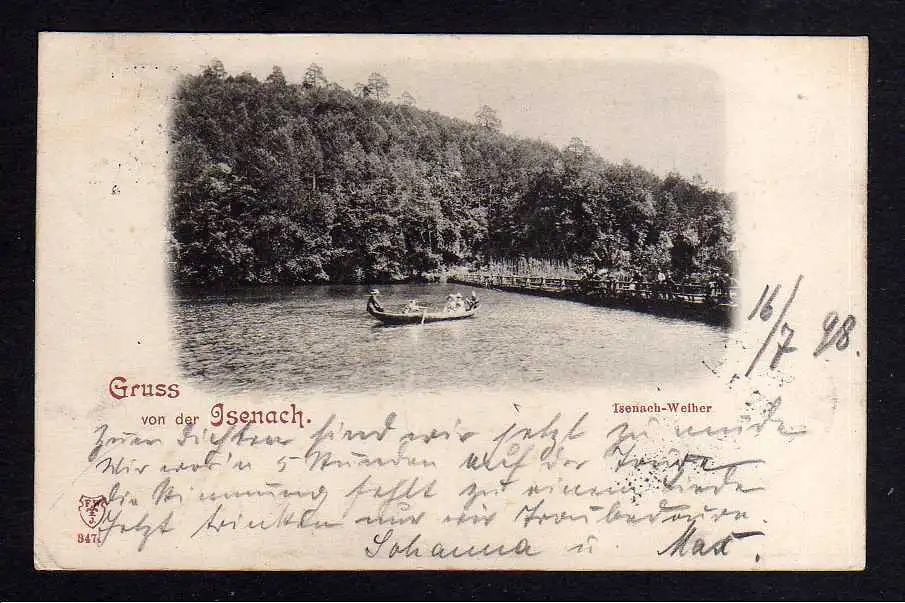 16/7 98.
Gruss
von der Isenach.
Isenach-Weiher
Zum Dichten sind wir jetzt zu müde
Wir war'n 5 Stunden auf der
die Stimmung fehlt zu einem Liede
Jetzt trinken nur wir
Johanna u. Max.
347.